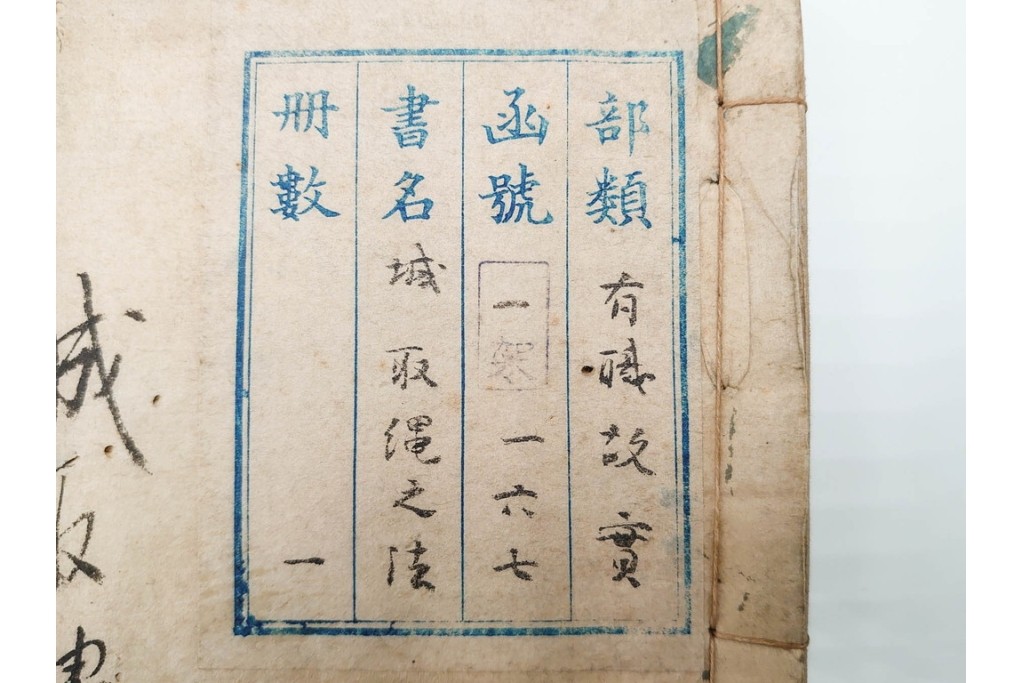 部類 有職故實
函號 一架 一六七
書名 城取繩之法
册數 一
城取